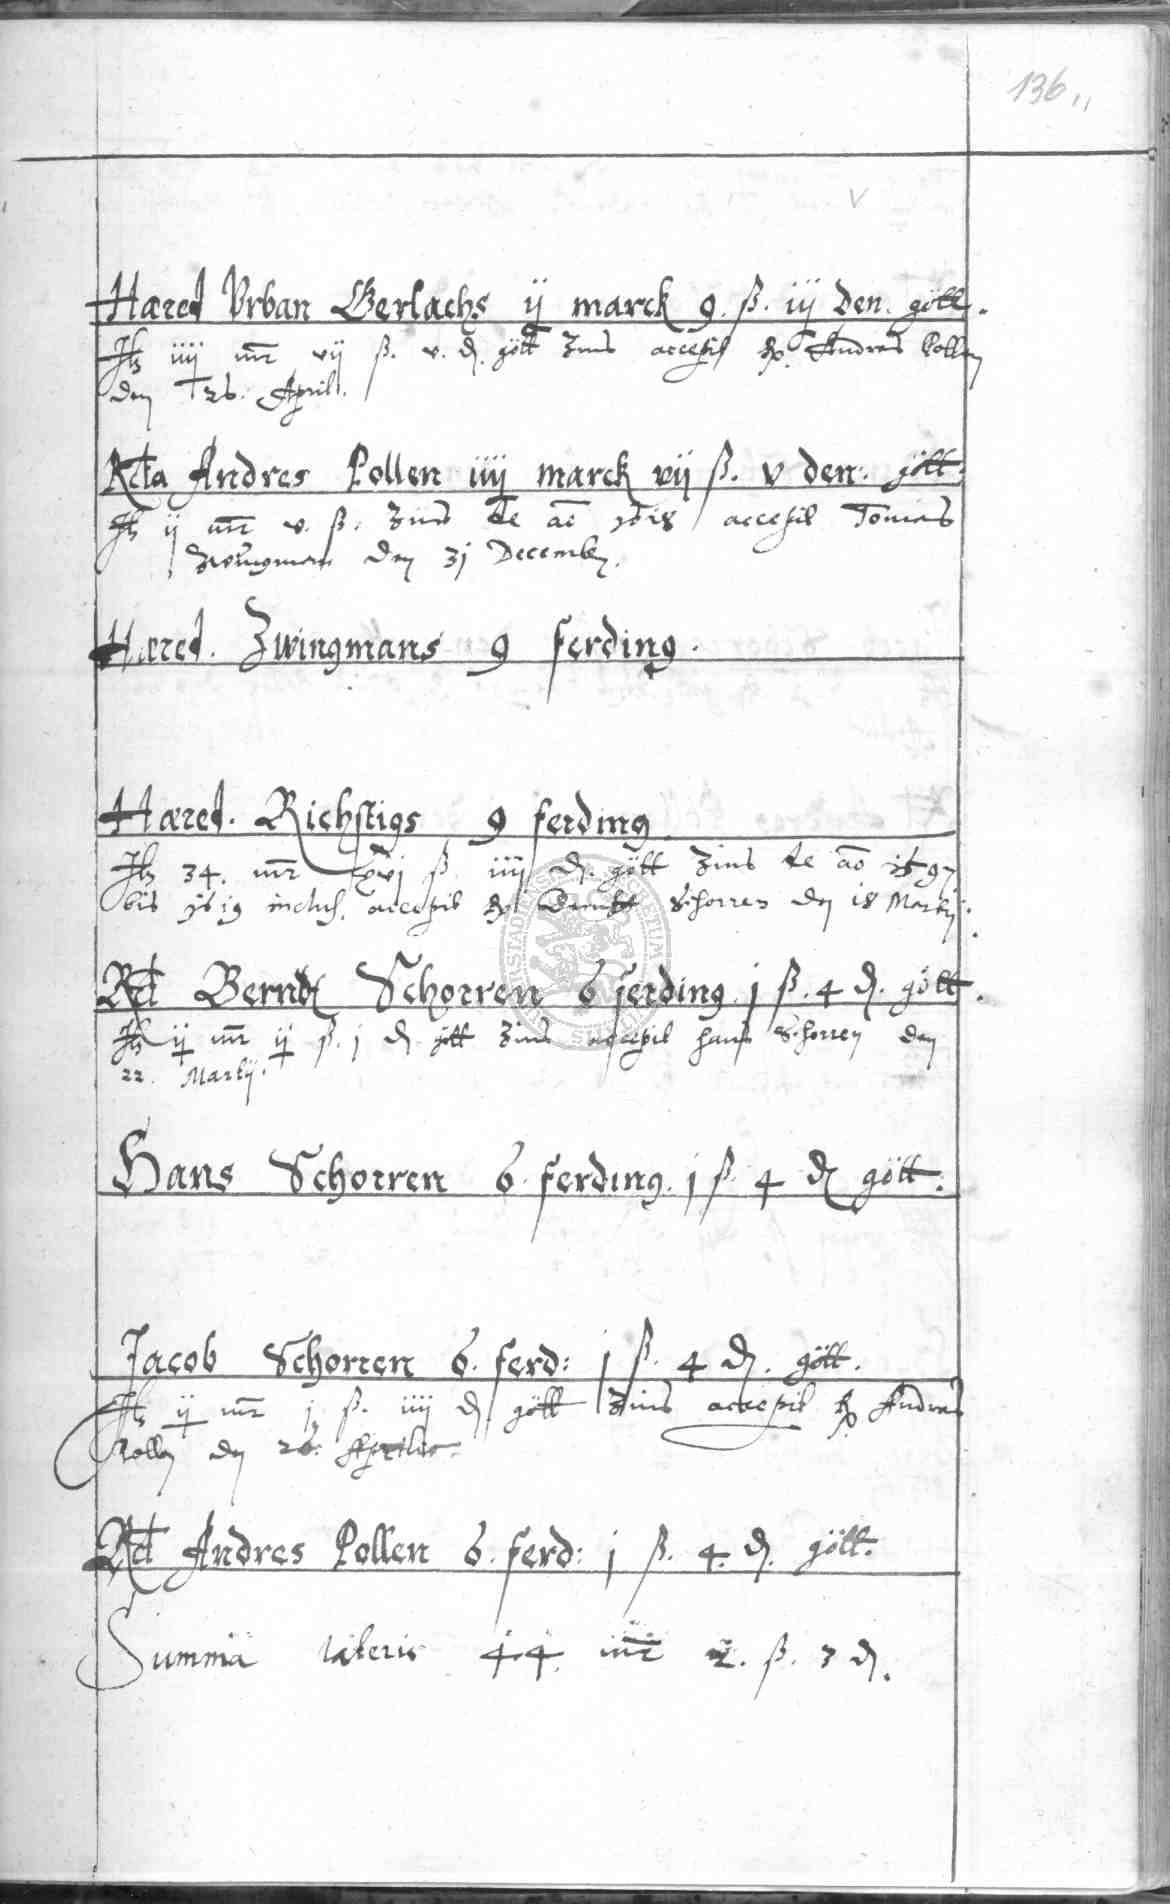 136
Hæred Vrban Gerlachs ij marck 9. ß. iij den. gött.
It iiij mr vij ß. v. d. gött Zins accepit Andres Pollen
den 26. April.
Rcta Andres Pollen iiij marck vij ß. v den: gött.
It ij mr v. ß. Zins de ao 1618 accepit Tomas
Zwingman den 31 Decemb.
Hæred. Zwingmans 9 ferding.
Hæred. Richstigs 9 ferding
It 34. mr xvj ß iiij d. gött Zins de ao 1597
bis 1619 inclus. accepit Schorren den 18 Martij.
Rct Berndt Schorren 6 ferding. j ß. 4 d. gött.
It ij mr ij ß. j d gött Zins accepit Hans Schorren den
22. Martij.
Hans Schorren 6 ferding. j ß. 4 d gött.
Jacob Schorren 6. ferd: j ß. 4 d. gött.
It ij mr j ß. iiij d gött Zins accepit Andres
Pollen den 26. Aprilis.
Rct Andres Pollen 6. ferd: j ß. 4. d. gött.
Summa lateris 44. mr 2. ß. 3 d.